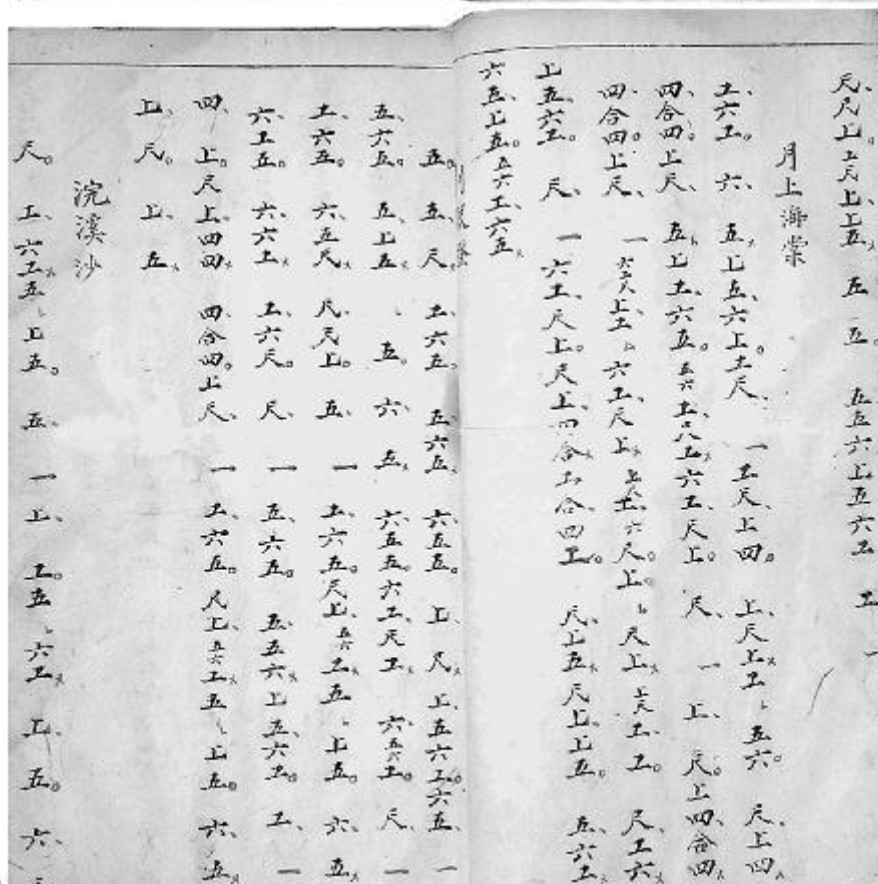 尺尺上上尺上上五 五 五 五五六上五六工 工 一
月上海棠
工六工 六 五上五六上工尺 一 工尺上四 上尺上工 五六 尺上四
四合四上尺 五上工六五五六工尺工六工尺上 尺 一 上 尺上四合四
四合四上尺 一 六工尺上工 六工尺上 上尺工六尺上 尺上上尺工工 尺工六
上五六工 尺 一 六工尺上尺上四合工合四工 尺上五尺上上五 五六工
六五上五五六工六五
五 五 尺 工六五 五六五 六五五 上 尺 上五六工六五 一
五六五 五上五 五 六 五 六五五六工尺工 六五六工 尺 一
工六五 六五尺 尺尺上 五 一 工六五尺上五六工五 上五 六 五
六工五 六六工 工六尺 尺 一 五六五 五五六上五六工 工 一
四 上尺上四四 四合四上尺 一 工六五尺上五六工五 上五 六 五
上 尺 上 五
浣溪沙
尺 工 六工五 上五 五 一 上 工五 六工 上 五 六